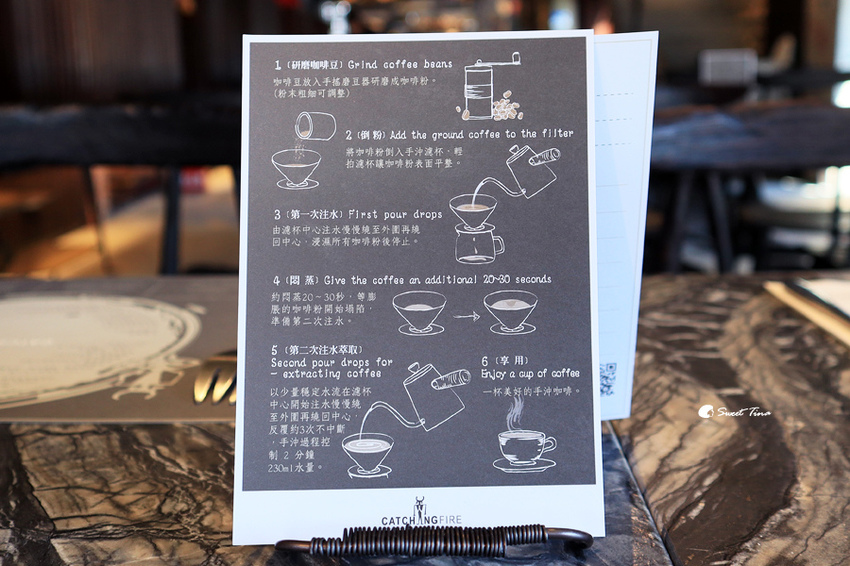 1 (研磨咖啡豆) Grind coffee beans
咖啡豆放入手搖磨豆器研磨成咖啡粉。
(粉末粗細可調整)
2 (倒 粉) Add the ground coffee to the filter
將咖啡粉倒入手沖濾杯，輕
拍濾杯讓咖啡粉表面平整。
3 (第一次注水) First pour drops
由濾杯中心注水慢慢繞至外圍再繞
回中心，浸濕所有咖啡粉後停止。
4 (悶 蒸) Give the coffee an additional 20~30 seconds
約悶蒸20~30秒，等膨
脹的咖啡粉開始塌陷，
準備第二次注水。
5 (第二次注水萃取)
Second pour drops for
- extracting coffee
以少量穩定水流在濾杯
中心開始注水慢慢繞
至外圍再繞回中心，
反覆約3次不中斷
，手沖過程控
制 2 分鐘
230ml水量。
6 (享 用)
Enjoy a cup of coffee
一杯美好的手沖咖啡。
CATCHINGFIRE
Sweet Tina